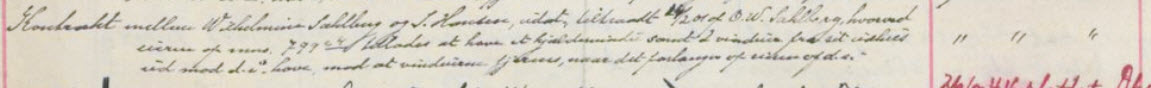 Kontrakt mellem Wilhelmine Sahlberg og S. Hansen, udst, tiltraadt 18/2 01 af O.W. Sahlberg, hvorved
eieren af mno. 799 tillades at have et kjældervindu samt 2 vinduer fra sit vidhus
ud mod d.e. have, mod at vinduerne fjernes, naar det forlanges af eieren af d.e.
" " "